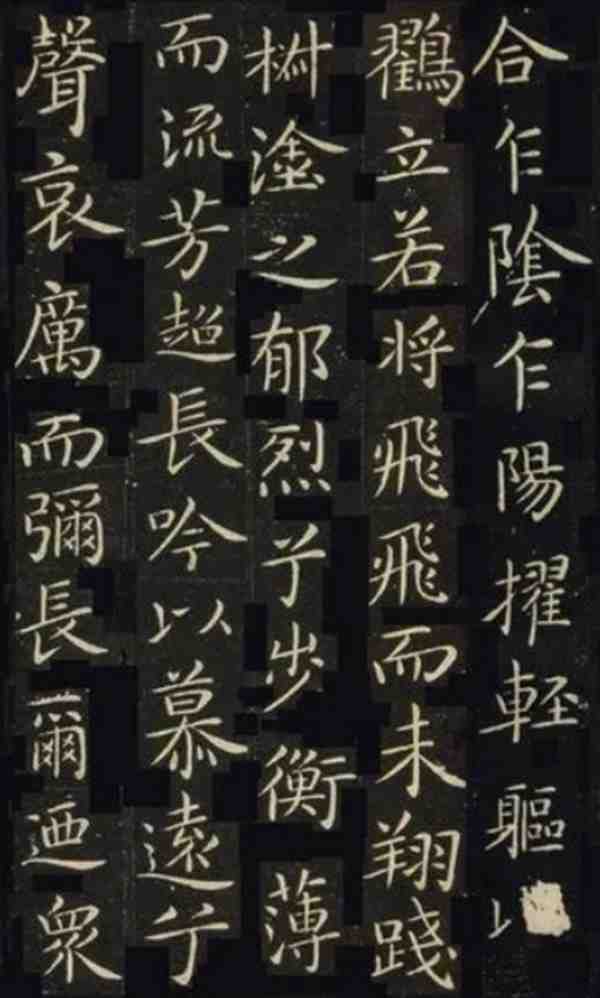 合乍陰乍陽擢輕軀
鶴立若将飛飛而未翔踐
椒塗之郁烈兮步衡薄
而流芳超長吟以慕遠兮
聲哀厲而彌長爾迺衆